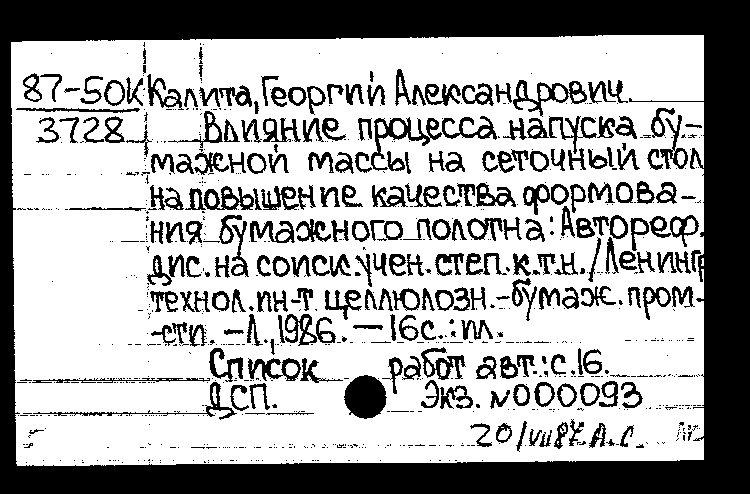 87-50К Калита, Георгий Александрович.
3728 Влияние процесса напуска бу-
мажной массы на сеточный стол
на повышение качества формова-
ния бумажного полотна: Автореф.
дис. на соиск. учен. степ. к.т.н. / Ленингр
технол. ин-т целлюлозн.-бумаж. пром-
-сти. - Л., 1986. - 16с.: ил.
Список работ авт.: с.16.
ДСП. Экз. N000093
20/VII87 А.С.